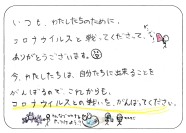 いつも、わたしたちのために、
コロナウイルスと戦ってくださって、
ありがとうございます。
今、わたしたちは、自分たちに出来ることを
がんばるので、これからも、
コロナウイルスとの戦いを、がんばってください。